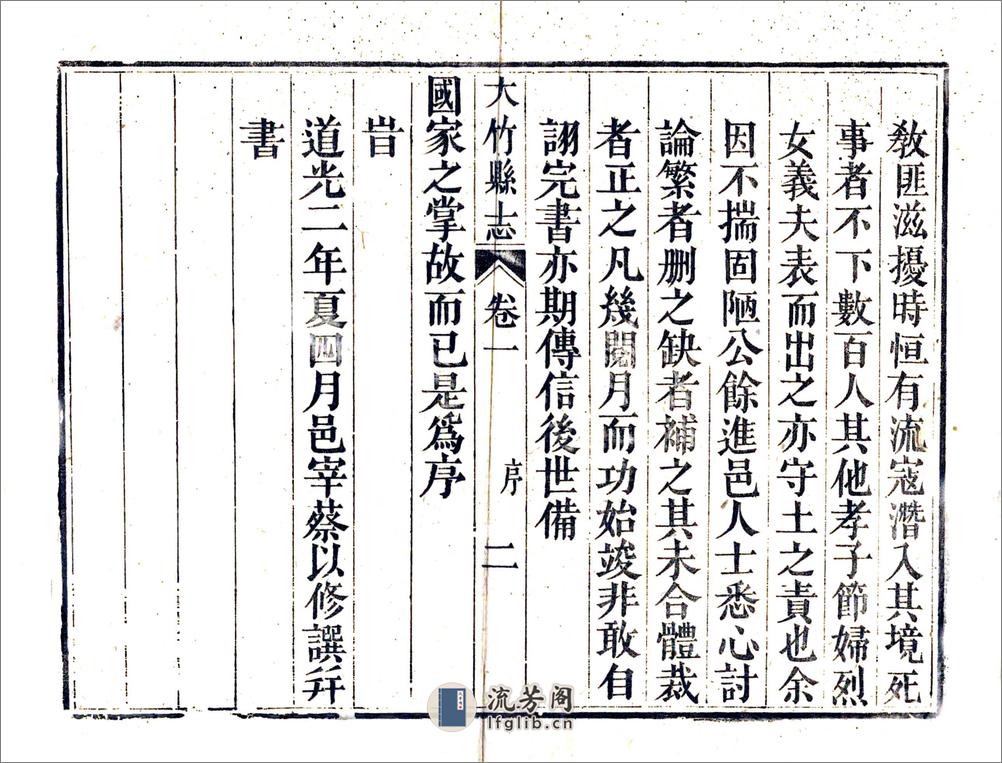 教匪滋擾時恒有流寇潛入其境死
事者不下數百人其他孝子節婦烈
女義夫表而出之亦守土之責也余
因不揣固陋公餘進邑人士悉心討
論繁者删之缺者補之其未合體裁
者正之凡幾閱月而功始竣非敢自
詡完書亦期傳信後世備
大竹縣志 卷一 序 二
國家之掌故而已是爲序
旹
道光二年夏四月邑宰蔡以修譔并
書
流芳阁
lfglib.cn